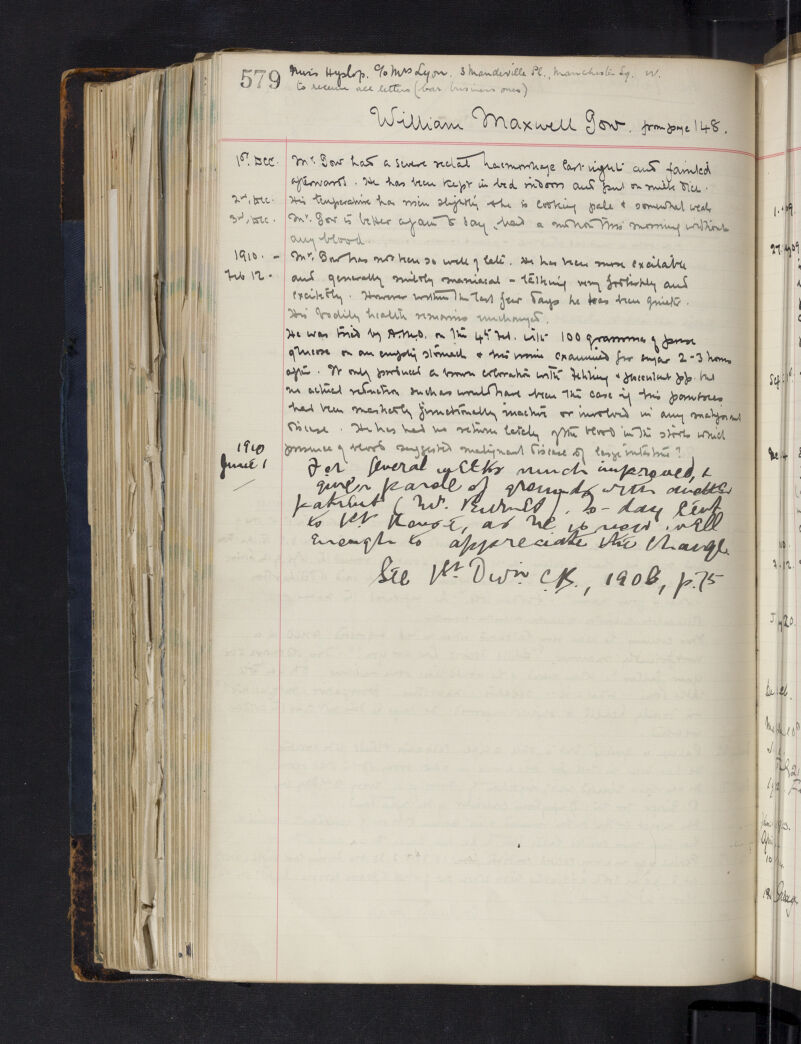 579 Miss Hyslop. c/o Mrs Lyon. 3 Mandeville Pl., Manchester Sq. W.
to receive all letters (bar business ones)
William Maxwell Gow. from page 148.
1st Dec. Mr. Gow had a severe rectal haemorrhage last night and fainted
afterwards. He has been kept in bed indoors and put on milk diet.
2nd, Dec. His temperature has risen slightly & he is looking pale & somewhat weak
3rd, Dec. Mr. Gow is better again to day, had a motion this morning without
any blood.
1910. - Mr. Gow has not been so well of late. He has been more excitable
Feb 12 - and generally mildly maniacal - talking very foolishly and
excitedly. However within the last few days he has been quieter.
His bodily health remains unchanged.
He was tried by A.M.D. on the 4th Feb. with 100 grammes of pure
glucose on an empty stomach & his urine examined for sugar 2-3 hours
after. It only produced a brown coloration with Fehling & flocculent pp. but
no actual reduction such as would have been the case if his pancreas
had been markedly functionally inactive or involved in any malignant
disease. He has had no return lately of the blood in the stools which
presence of blood suggested malignant disease of large intestine?
1910
June 1 For several weeks much improved, &
given parole of grounds with another
patient (Mr. ). To-day sent
to Kt House, as he is now well
enough to appreciate the change.
See 1st Divn C.B., 1908, p.75
1.09.
27.
Sep
Dec 4
10.
20.